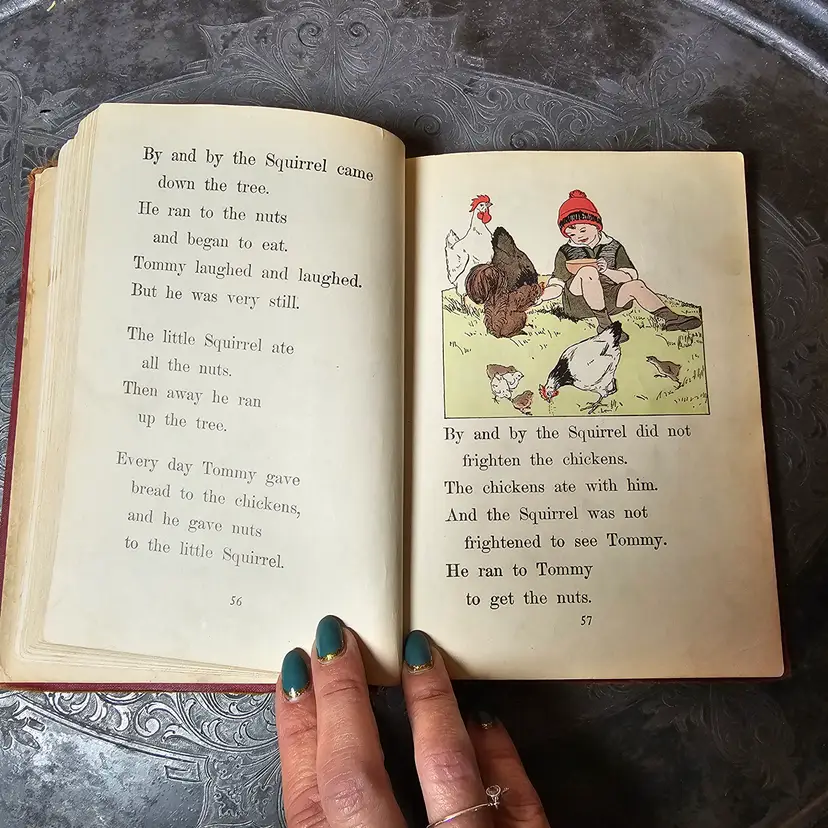 By and by the Squirrel came
down the tree.
He ran to the nuts
and began to eat.
Tommy laughed and laughed.
But he was very still.
The little Squirrel ate
all the nuts.
Then away he ran
up the tree.
Every day Tommy gave
bread to the chickens,
and he gave nuts
to the little Squirrel.
56
By and by the Squirrel did not
frighten the chickens.
The chickens ate with him.
And the Squirrel was not
frightened to see Tommy.
He ran to Tommy
to get the nuts.
57